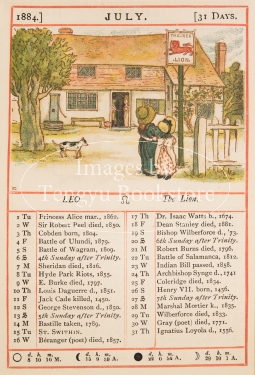 1884.]
JULY.
[31 DAYS.
THE RED
LION
LEO
The Lion.
1 Tu Princess Alice mar., 1862.
2 W Sir Robert Peel died, 1850.
3 Th Cobden born, 1804.
4 F Battle of Ulundi, 1879.
5 S Battle of Wagram, 1809.
6 S 4th Sunday after Trinity.
7 M Sheridan died, 1816.
8 Tu Hyde Park Riots, 1855.
9 W E. Burke died, 1797.
10 Th Louis Daguerre d., 1851.
11 F Jack Cade killed, 1450.
12 S George Stevenson d., 1850.
13 S 5th Sunday after Trinity.
14 M Bastille taken, 1789.
15 Tu St. Swithin.
16 W Béranger (poet) died, 1857.
17 Th Dr. Isaac Watts b., 1674.
18 F Dean Stanley died, 1881.
19 S Bishop Wilberforce d., '73.
20 S 6th Sunday after Trinity.
21 M Robert Burns died, 1796.
22 Tu Battle of Salamanca, 1812.
23 W Indian Bill passed, 1858.
24 Th Archbishop Synge d., 1741
25 F Coleridge died, 1834.
26 S Henry VII. born, 1456.
27 S 7th Sunday after Trinity.
28 M Marshal Mortier k., 1835.
29 Tu Wilberforce died, 1833.
30 W Gray (poet) died, 1771.
31 Th Ignatius Loyola d., 1556.
d. h. m.
d. h. m.
d. h. m.
d. h. m.
Images of
Tengyu Bookstore